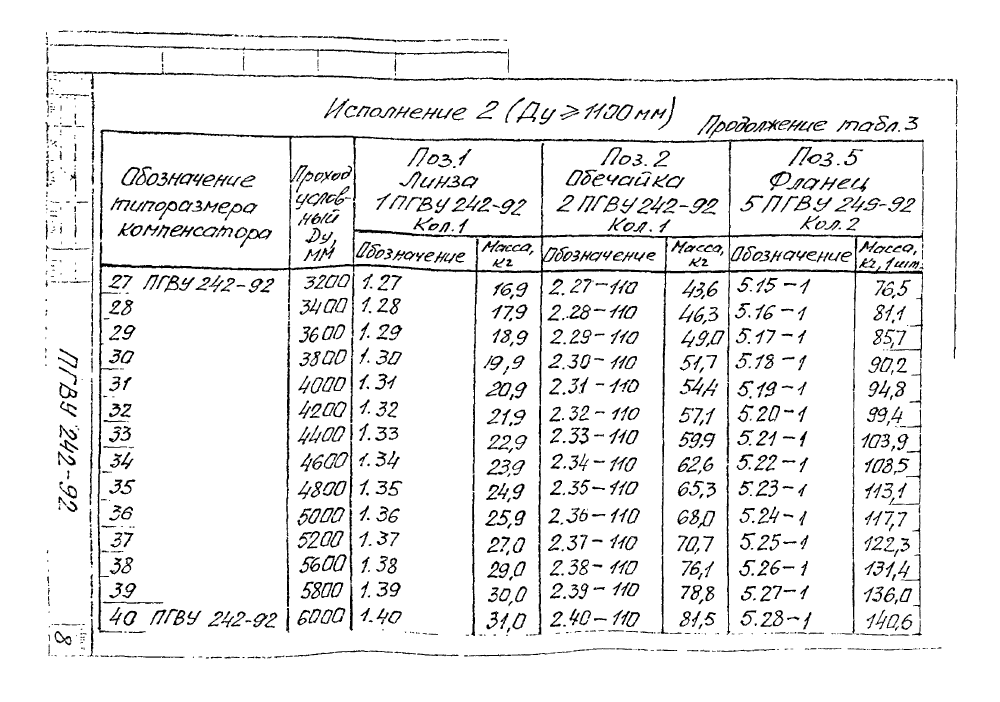 Исполнение 2 (Ду ≥ 1100 мм)
Продолжение табл.3
Обозначение типоразмера компенсатора
Проход условный Ду, мм
Поз.1 Линза 1 ПГВУ 242-92 Кол.1
Поз. 2 Обечайка 2 ПГВУ 242-92 Кол.1
Поз.5 Фланец 5 ПГВУ 249-92 Кол.2
Обозначение Масса, кг Обозначение Масса, кг Обозначение Масса, кг, 1 шт.
27 ПГВУ 242-92 3200 1.27 16,9 2.27-110 43,6 5.15-1 76,5
28 3400 1.28 17,9 2.28-110 46,3 5.16-1 81,1
29 3600 1.29 18,9 2.29-110 49,0 5.17-1 85,7
30 3800 1.30 19,9 2.30-110 51,7 5.18-1 90,2
31 4000 1.31 20,9 2.31-110 54,4 5.19-1 94,8
32 4200 1.32 21,9 2.32-110 57,1 5.20-1 99,4
33 4400 1.33 22,9 2.33-110 59,9 5.21-1 103,9
34 4600 1.34 23,9 2.34-110 62,6 5.22-1 108,5
35 4800 1.35 24,9 2.35-110 65,3 5.23-1 113,1
36 5000 1.36 25,9 2.36-110 68,0 5.24-1 117,7
37 5200 1.37 27,0 2.37-110 70,7 5.25-1 122,3
38 5600 1.38 29,0 2.38-110 76,1 5.26-1 131,4
39 5800 1.39 30,0 2.39-110 78,8 5.27-1 136,0
40 ПГВУ 242-92 6000 1.40 31,0 2.40-110 81,5 5.28-1 140,6
ПГВУ 242-92
8